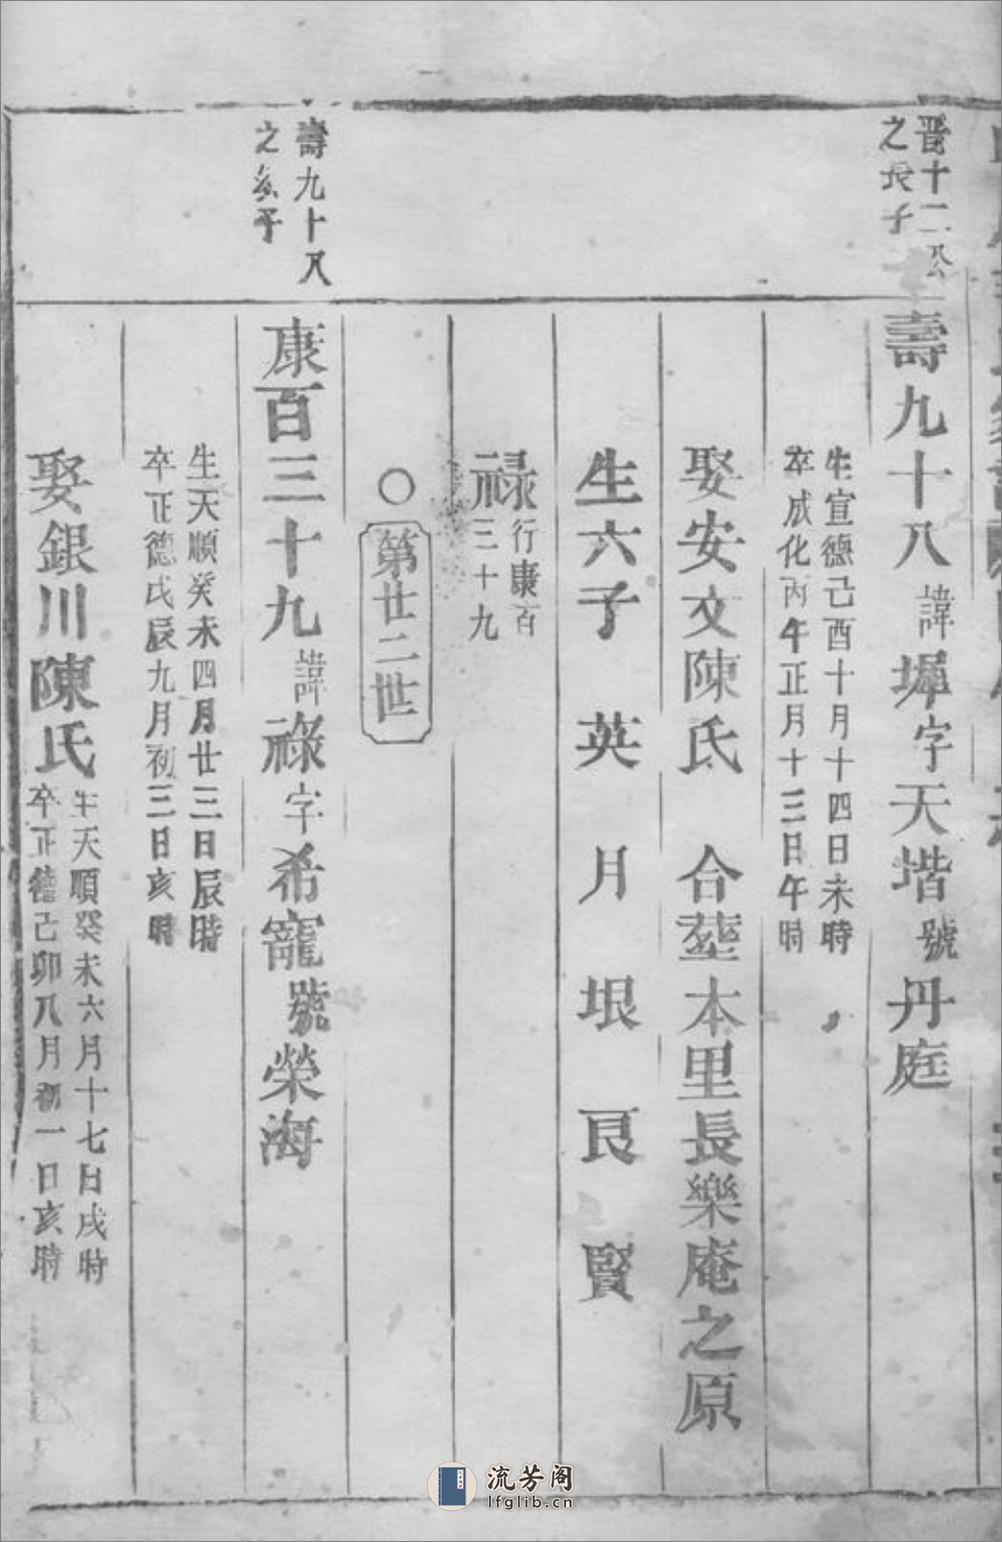 晋十二公
之長子
壽九十八諱墠字天堦號丹庭
生宣德己酉十月十四日未時
卒成化丙午正月十三日午時
娶安文陳氏 合塟本里長樂庵之原
生六子 英 月 垠 艮 賢
祿行康百
三十九
○第廿二世
壽九十八
之子
康百三十九諱祿字希寵號榮海
生天順癸未四月廿三日辰時
卒正德戊辰九月初三日亥時
娶銀川陳氏
生天順癸未六月十七日戌時
卒正德己卯八月初一日亥時
流芳阁
lfglib.cn